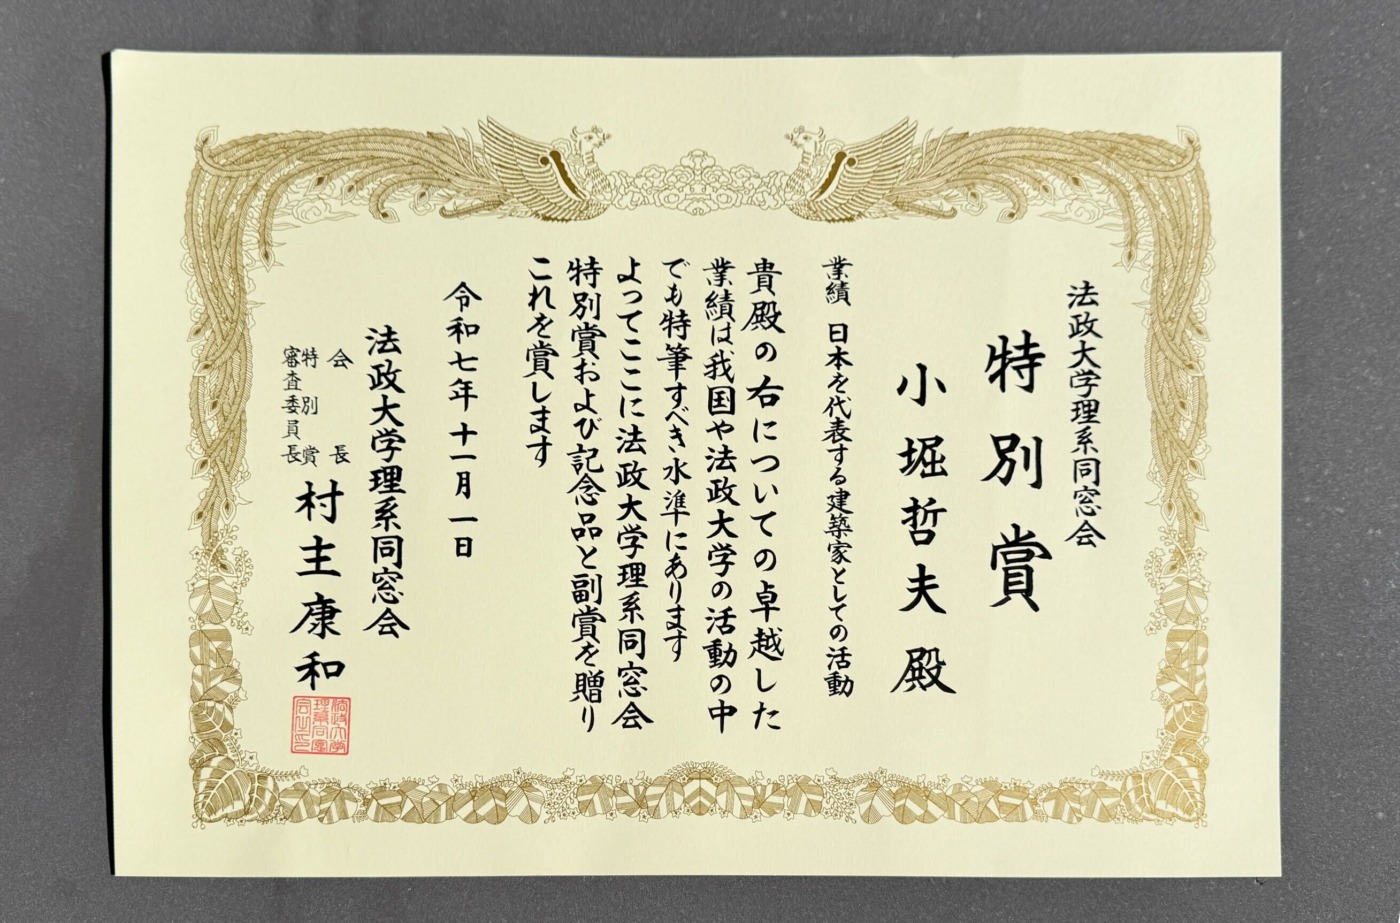 法政大学理系同窓会
特別賞
小堀哲夫殿
業績 日本を代表する建築家としての活動
貴殿の右についての卓越した
業績は我国や法政大学の活動の中
でも特筆すべき水準にあります
よってここに法政大学理系同窓会
特別賞および記念品と副賞を贈り
これを賞します
令和七年十一月一日
法政大学理系同窓会
会長
特別賞
審査委員長
村主康和